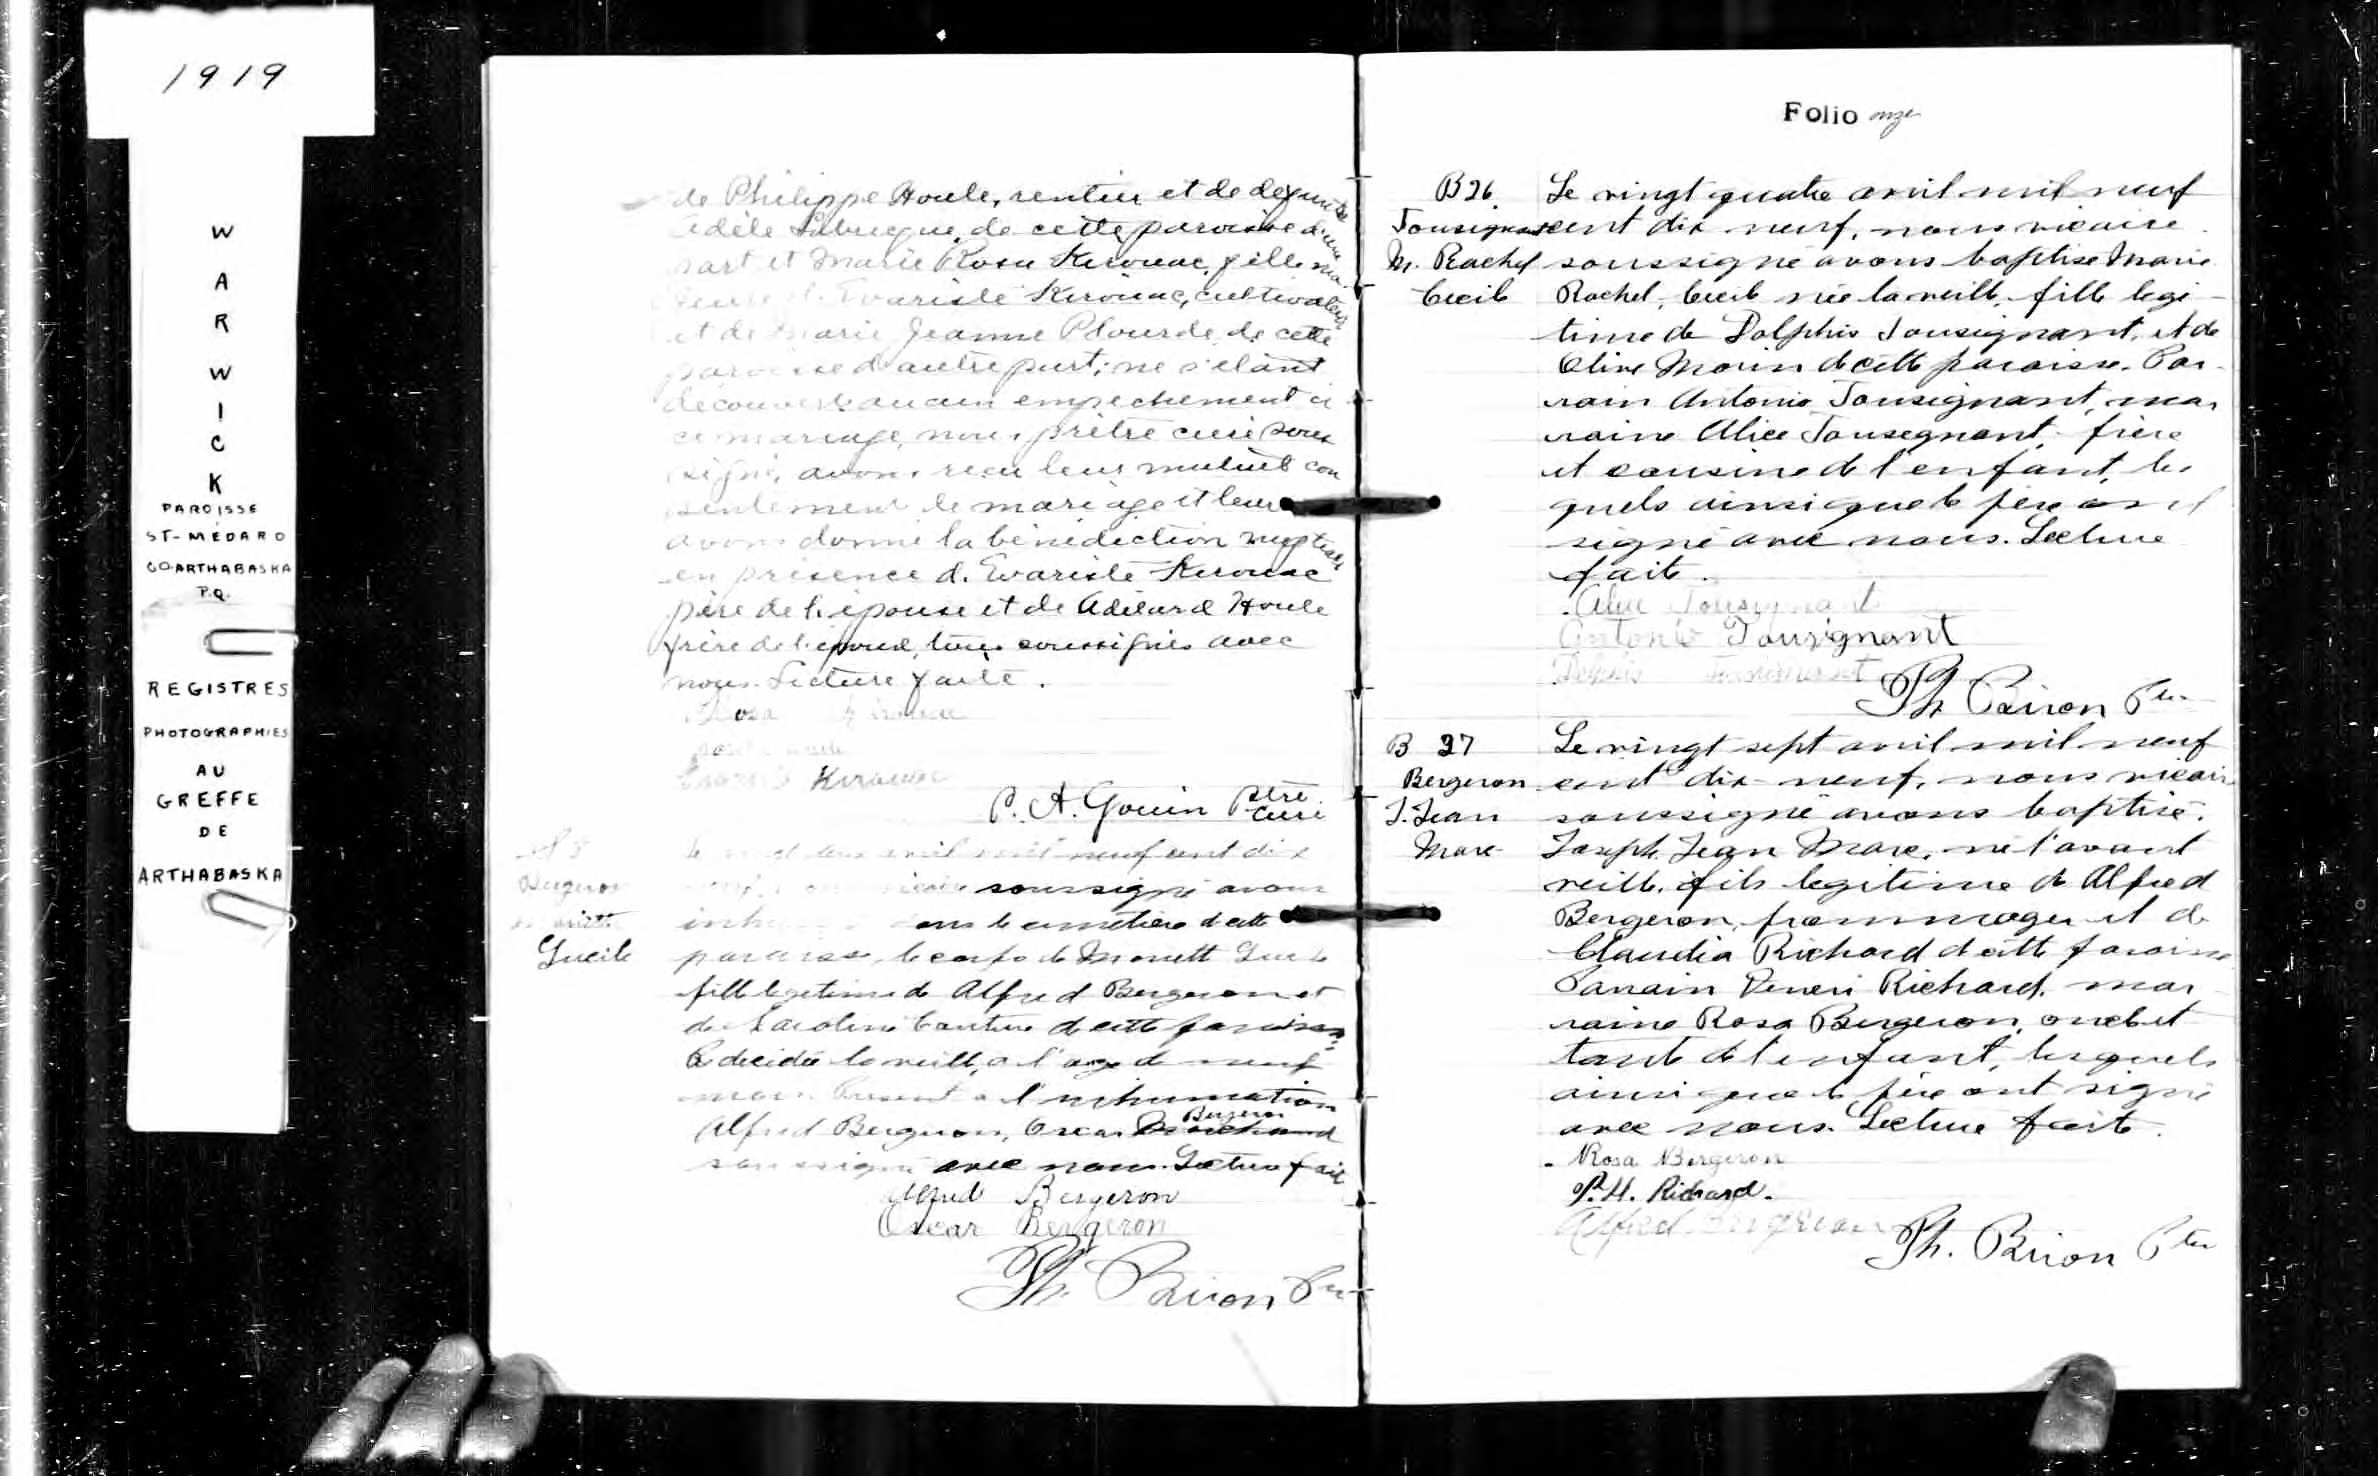 1919
W
A
R
W
I
C
K
PAROISSE
ST-MÉDARD
CO ARTHABASKA
P.Q.
REGISTRES
PHOTOGRAPHIES
AU
GREFFE
DE
ARTHABASKA
de Philippe Houle, rentier et de defunte
Adèle Labrecque, de cette paroisse d'une
part et Marie Rosa Kerouac, fille mi-
neure d'Evariste Kerouac, cultivateur
et de Marie Jeanne Plourde, de cette
paroisse d'autre part; ne s'étant
découvert aucun empechement à
ce mariage, nous prêtre curé sous
signé, avons reçu leur mutuel con
sentement de mariage et leur
avons donné la bénédiction nuptiale
en présence d'Evariste Kerouac
père de l'épouse et de Adélard Houle
frère de l'époux, tous soussignés avec
nous. Lecture faite.
Rosa Kerouac
Kerouac
P. A. Gouin Ptre
Curé
Bergeron
Lucile
avril mil neuf cent dix
soussigné avons
dans le cimetière de cette
paroisse, le corps de Mariette Lucile
fille legitime de Alfred Bergeron et
de Caroline Couture de cette paroisse
décédée la veille, a l'age de neuf
mois. Present a l'inhumation
Bergeron
Alfred Bergeron, Oscar
soussigné avec nous. Lecture fait
Alfred Bergeron
Oscar Bergeron
Ph. Brion Ptre
Folio onze
B 26
Tousignant
M. Rachel
Cecile
Le vingt quatre avril mil neuf
cent dix neuf, nous vicaire
soussigné avons baptise Marie
Rachel, Cecile née la veille, fille legi-
time de Dolphis Tousignant, et de
Olive Morin de cette paroisse. Par-
rain Antonio Tousignant, mar
raine Alice Tousegnant, frère
et cousine de l'enfant, les
quels ainsi que le père ont
signé avec nous. Lecture
faite.
Alice Tousignant
Antonio Tousignant
Delphis Tousignant
Ph Brion Ptre
B 27
Bergeron
J. Jean
Marc
Le vingt sept avril mil neuf
cent dix-neuf, nous vicaire
soussigné avons baptisé
Joseph, Jean Marc, né l'avant
veille, fils legitime de Alfred
Bergeron, frommager et de
Claudia Richard de cette paroisse
Parrain Richard, mar
raine Rosa Bergeron, oncle et
tante de l'enfant, lesquels
ainsi que le père ont signé
avec nous. Lecture faite.
Rosa Bergeron
P. H. Richard.
Alfred Bergeron
Ph. Brion Ptre